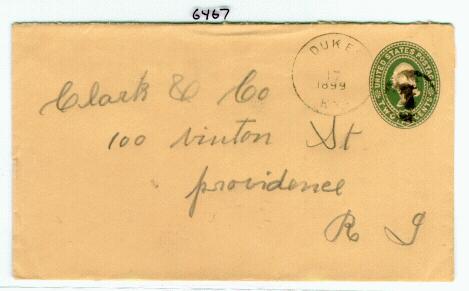 6467
DUKE
17
1899
UNITED STATES POSTAGE
TWO CENTS
Clark & Co
100 Vinton St
providence
R I